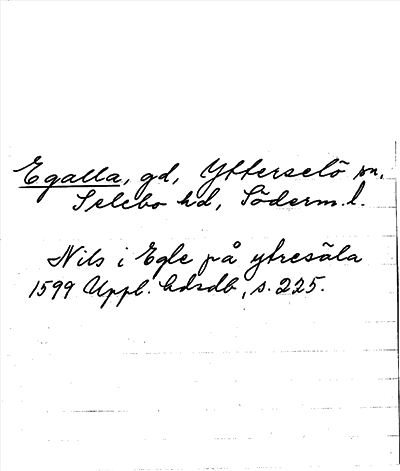 Egalla, gd, Ytterselö sn,
Selebo hd, Söderm. l.
Nils i Egle på ytresäla
1599 Uppl. hdrdb, s. 225.